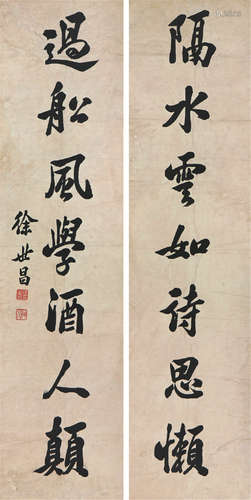 隔水雲如詩思懶
過船風學酒人顛
徐世昌